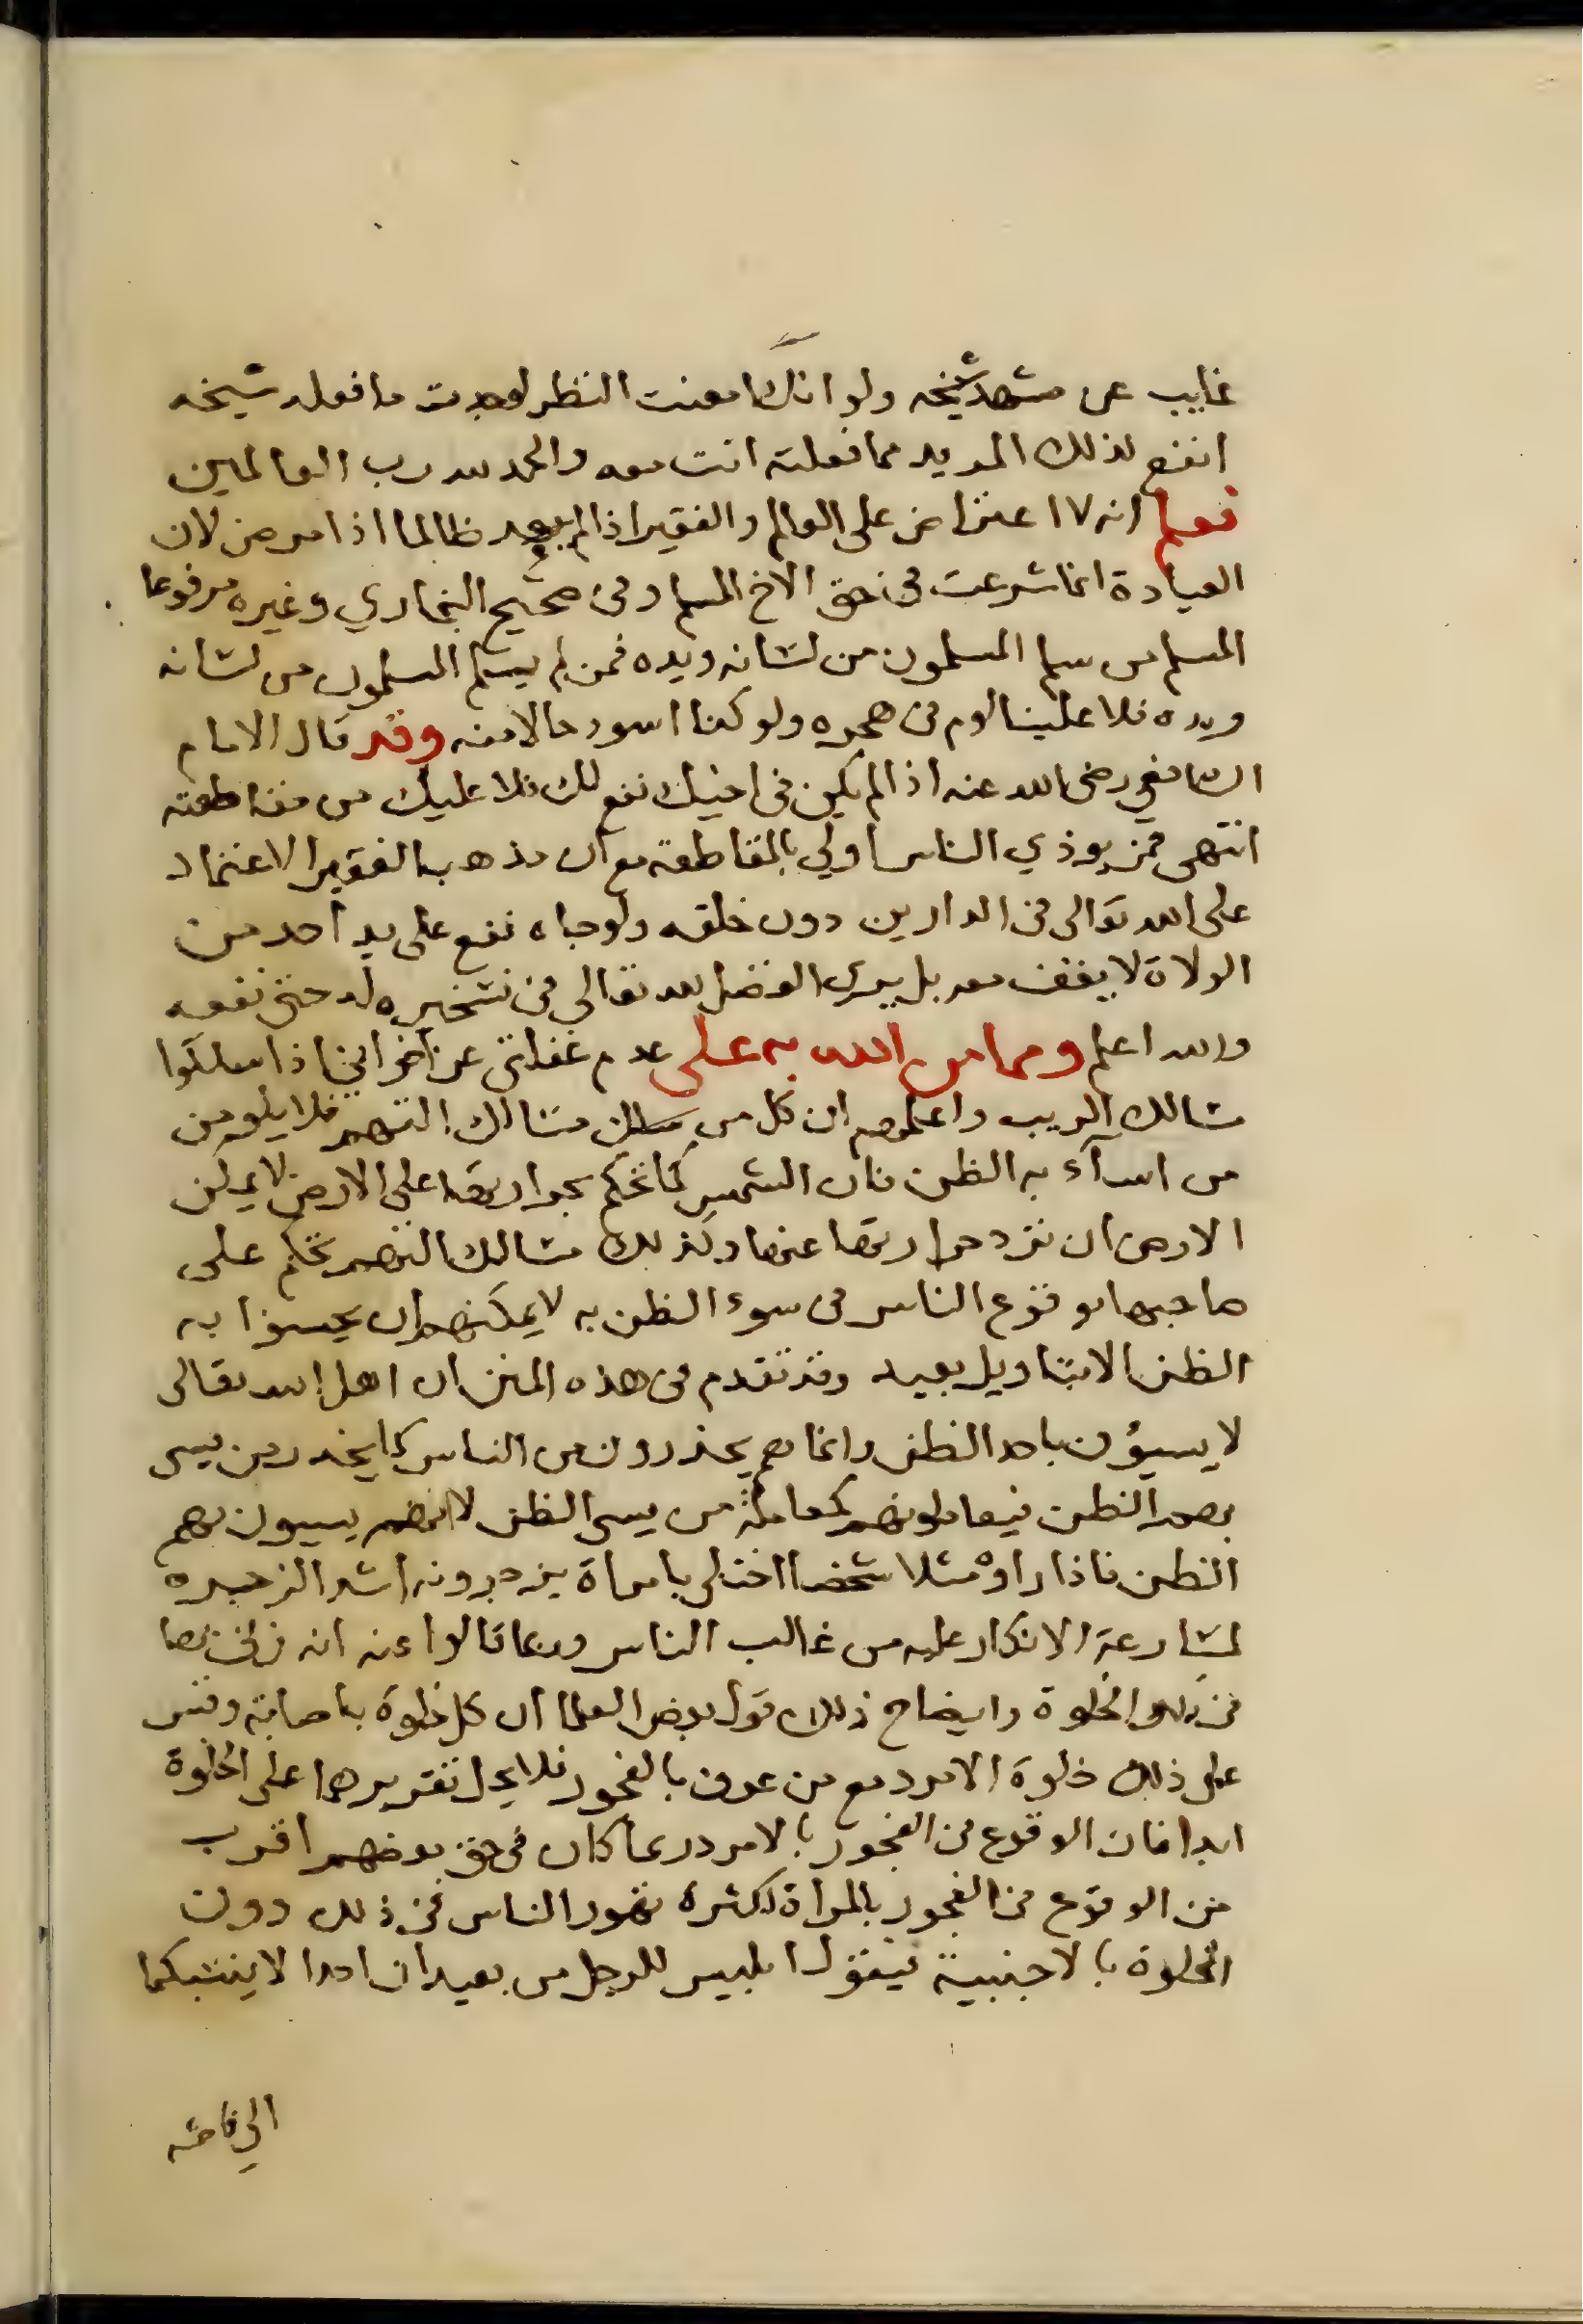 غايب عن مشهد شيخه ولو انك امعنت النظر لوجدت ما فعله شيخه
انفع لذلك المريد مما فعلته انت معه والحمد لله رب العالمين
فعلم انه لا اعتراض على العالم والفقير اذا لم يعد ظالما اذا مرض لان
العيادة انما شرعت في حق الاخ المسلم وفي صحيح البخاري وغيره مرفوعا
المسلم من سلم المسلمون من لسانه ويده فمن لم يسلم المسلمون من لسانه
ويده فلا علينا لوم في هجره ولو كنا اسوء حالا منه وقد قال الامام
الشافعي رضى الله عنه اذا لم يكن في اخيك نفع لك فلا عليك من مقاطعته
انتهى فمن يوذي الناس اولي بالمقاطعة مع ان مذهب الفقير الاعتماد
على الله تعالى في الدارين دون خلقه ولو جاه نفع على يد احد من
الولاة لا يقف معه بل يرى الفضل لله تعالي في تسخيره له حتى نفعه
والله اعلم ومما من الله به على عدم غفلتي عن اخواني اذا سلكوا
مسالك الريب واعلمهم ان كل من سلك مسالك التهم فلا يلومن
من اسآء به الظن فان الشمس كما تحكم بحرارتها على الارض لا يمكن
الارض ان ترد حرارتها عنها وكذلك مسالك التهم تحكم على
صاحبها بوقوع الناس في سوء الظن به لا يمكنهم ان يحسنوا به
الظن الا بتاويل بعيد وقد تقدم في هذه المنن ان اهل الله تعالى
لا يسيؤن باحد الظن وانما هم يحذرون من الناس كما يحذر من يسى
بهم الظن فيعاملونهم كمعاملة من يسى الظن لا انهم يسيون بهم
الظن فاذا راوا مثلا شخصا اختلى بامراة يزجرونه اشد الزجر
لمسارعة الانكار عليه من غالب الناس وربما قالوا عنه انه زنى بها
في تلك الخلوة وايضاح ذلك قول بعض العلما ان كل خلوة باصابة وقس
على ذلك خلوة الامرد مع من عرف بالفجور فلا يحل تقريرهما على الخلوة
ابدا فان الوقوع في الفجور بالامرد ربما كان في حق بعضهم اقرب
من الوقوع في الفجور بالمراة لكثرة تهور الناس في ذلك دون
الخلوة بالاجنبية فيقول ابليس للرجل من بعيد ان احدا لا ينسبكما
الى فاحشه